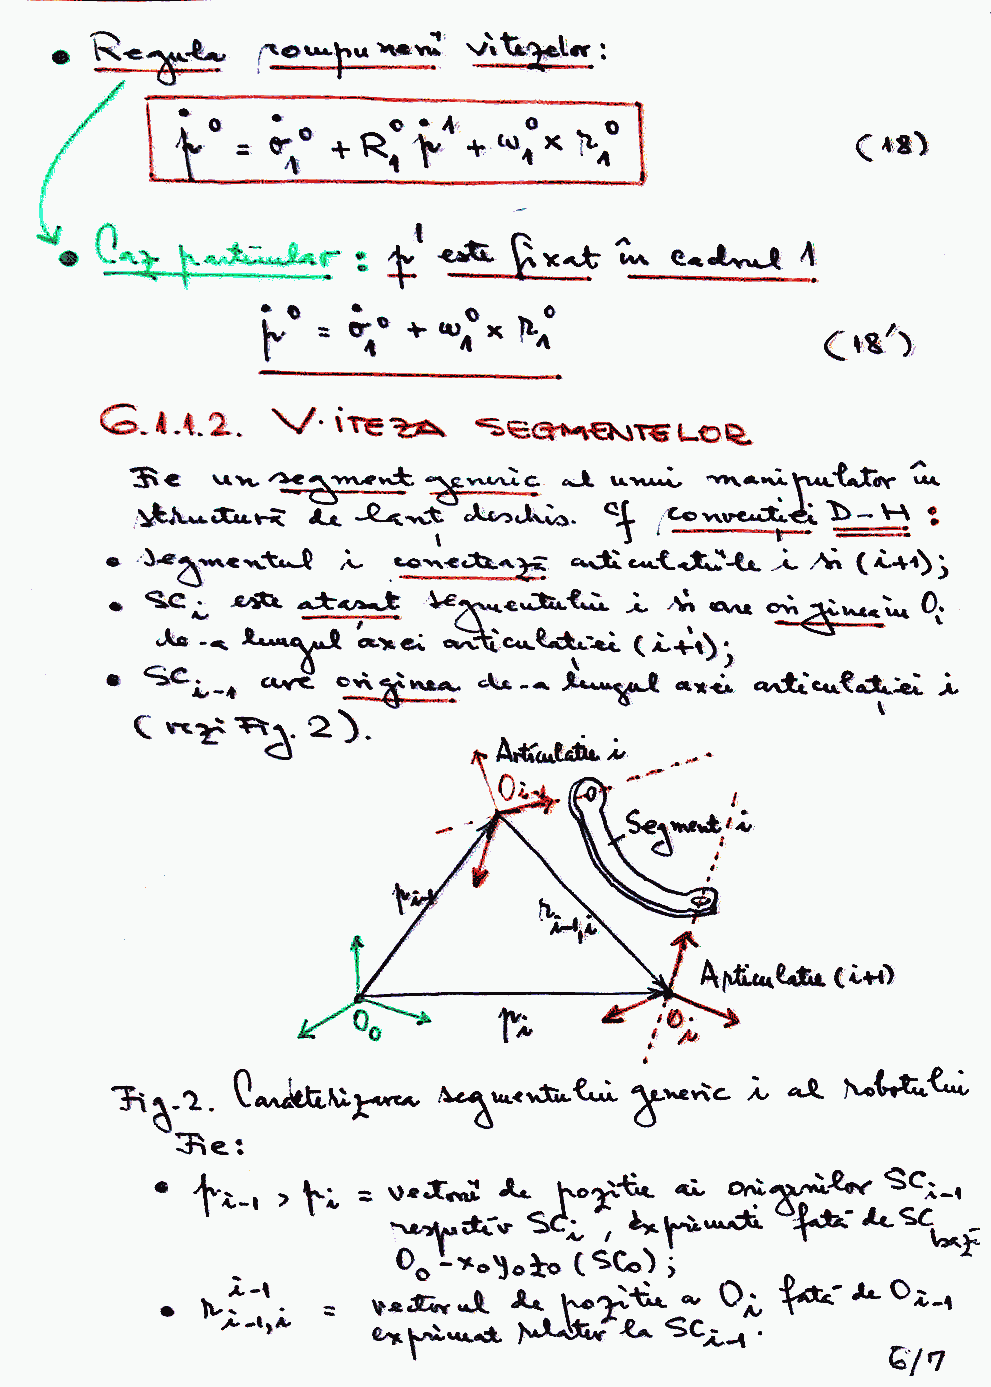 • Regula compunerii vitezelor:
ṗ⁰ = ȯ₁⁰ + R₁⁰ ṗ¹ + ω₁⁰ × r₁⁰ (18)
• Caz particular: p¹ este fixat în cadrul 1
ṗ⁰ = ȯ₁⁰ + ω₁⁰ × r₁⁰ (18')
6.1.1.2. VITEZA SEGMENTELOR
Fie un segment generic al unui manipulator în
structură de lanț deschis. Cf convenției D-H:
• segmentul i conectează articulațiile i și (i+1);
• SCᵢ este atașat segmentului i și are originea în Oᵢ
de-a lungul axei articulației (i+1);
• SCᵢ₋₁ are originea de-a lungul axei articulației i
(vezi Fig. 2).
Articulatie i
Oᵢ₋₁
Segment i
pᵢ₋₁
rᵢ₋₁,ᵢ
Articulatie (i+1)
O₀
pᵢ
Oᵢ
Fig. 2. Caracterizarea segmentului generic i al robotului
Fie:
• pᵢ₋₁, pᵢ = vectorii de poziție ai originilor SCᵢ₋₁
respectiv SCᵢ, exprimati față de SC bază
O₀-x₀y₀z₀ (SC₀);
• rᵢ₋₁,ᵢ^(i-1) = vectorul de poziție a Oᵢ față de Oᵢ₋₁
exprimat relativ la SCᵢ₋₁.
6/7